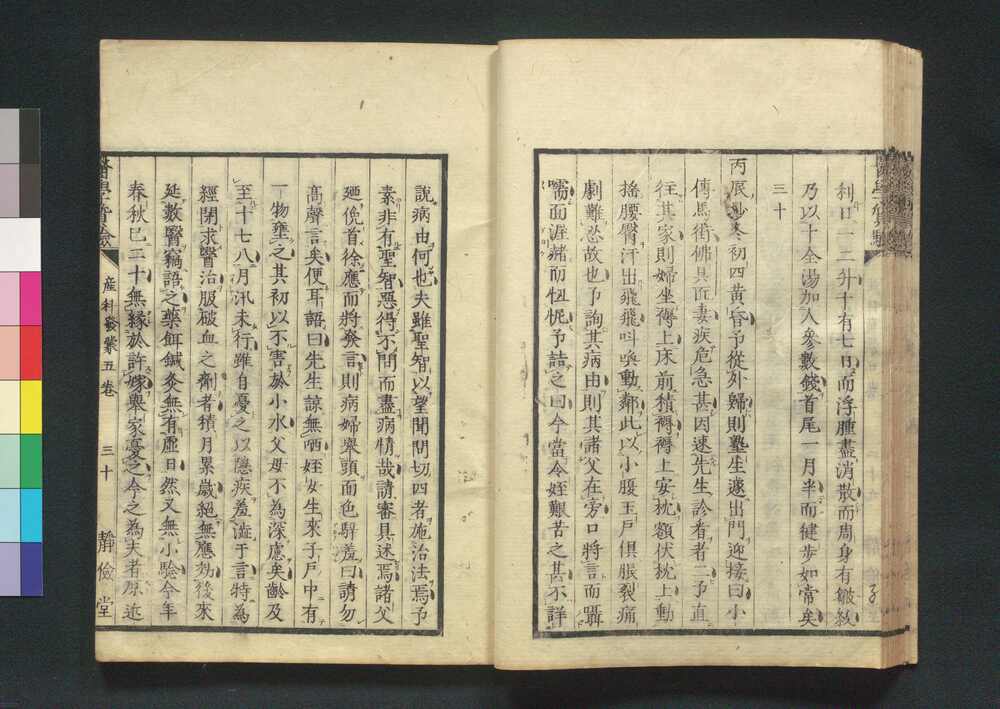 利日一二升十有七日而浮腫盡消散而周身有皺紋
乃以十全湯加人參數錢首尾一月半而徤步如常矣
三十
丙辰孟冬初四黃昏予從外歸則塾生遽出門迎接曰小
傳馬街佛具匠妻疾危急甚因速先生診者者二予直
徃其家則婦坐褥上床前積褥褥上安枕額伏枕上動
搖腰臀汗出飛飛叫喚動鄰此以小腹玉戶俱脹裂痛
劇難忍故也予詢其病由則其諸父在旁口將言而聶
嚅面涯赭而忸怩予詰之曰今當令姪艱苦之甚不詳
說病由何也夫雖聖智以望聞問切四者施治法焉予
素非有聖智惡得不問而盡病情哉請審具述焉諸父
廼俛首徐應而將發言則病婦舉頭而色騂羞曰請勿
高聲言矣便耳語曰先生諒無哂姪女生來子戶中有
一物壅之其初以不害於小水父母不為深慮矣齡及
至十七八月汛未行雖自憂之以隱疾羞澁于言特為
經閉求醫治服破血之劑者積月累歲絕無應効後來
延數醫竊語之藥餌鍼灸無有虛日然又無小驗今年
春秋已二十無緣於許嫁舉家憂之今之為夫者原近
醫學資驗
產科發蒙五卷
三十
靜儉堂